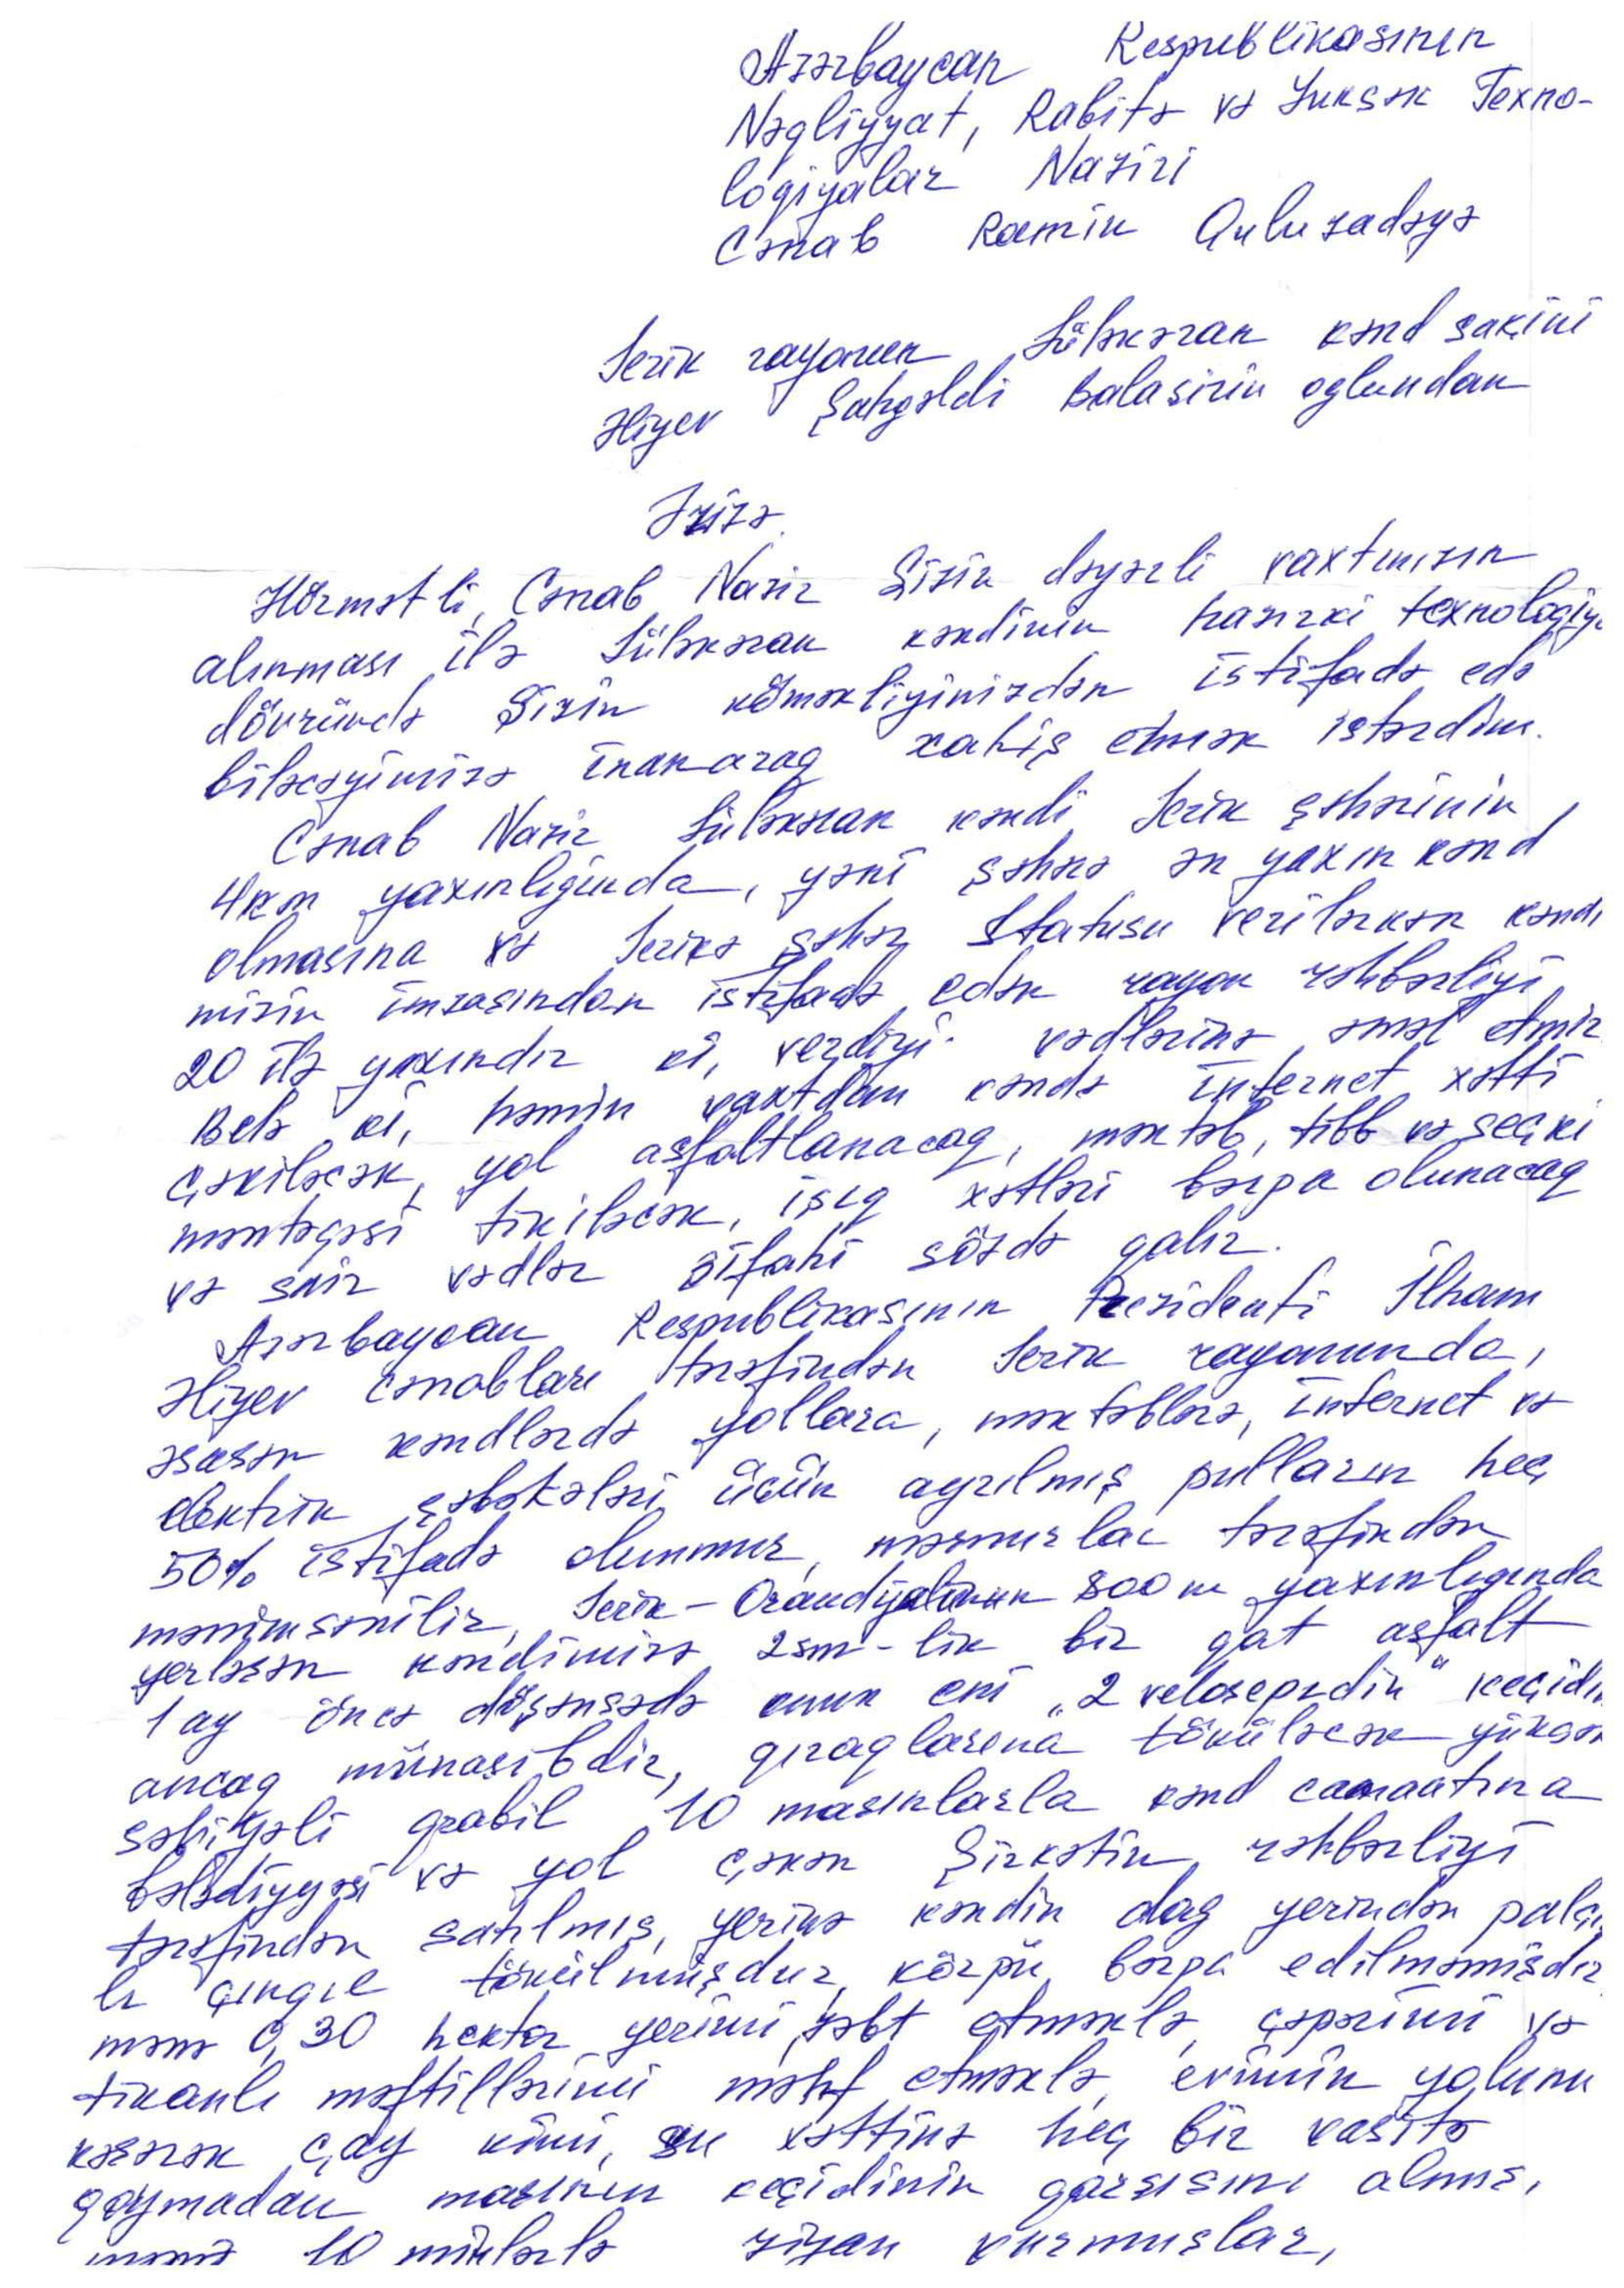 Azərbaycan Respublikasının
Nəqliyyat, Rabitə və Yuksək Texno-
logiyalar Naziri
Cənab Ramin Quluzadəyə
Lerik rayonun Lüləkəran kənd sakini
Əliyev Şahgəldi Balaşirin oglundan
Ərizə.
Hörmətli, Cənab Nazir Sizin dəyərli vaxtınızın
alınması ilə Lüləkəran kəndinin hazırki texnologiya
dövründə Sizin köməkliyinizdən istifadə edə
biləcəyimizə inanaraq xahiş etmək istərdim.
Cənab Nazir Lüləkəran kəndi Lerik şəhərinin
4km yaxınlıgında, yəni şəhərə ən yaxın kənd
olmasına və Lerikə şəhər statusu verilərkən kəndi
mizin imzasından istifadə edən rayon rəhbərliyi
20 ilə yaxındır ki, verdiyi vədlərinə əməl etmir.
Belə ki, həmin vaxtdan kəndə internet xətti
çəkiləcək, yol asfaltlanacaq, məktəb, tibb və seçki
məntəqəsi tikiləcək, işıq xətləri bərpa olunacaq
və sair vədlər şifahi sözdə qalır.
Azərbaycan Respublikasının Prezidenti İlham
Əliyev cənabları tərəfindən Lerik rayonunda,
əsasən kəndlərdə yollara, məktəblərə, internet və
elektrik şəbəkələri üçün ayrılmış pulların heç
50% istifadə olunmur, məmurlar tərəfindən
mənimsənilir, Lerik-Orandyolunun 800m yaxınlıgında
yerləşən kəndimizə 2sm-lik bir qat asfalt
1 ay öncə döşənsədə onun eni "2 velosepedin" keçidinə
ancaq münasibdir, qıraqlarına töküləcək yüksək
səviyyəli qrabil 10 maşınlarla kənd camaatına
bələdiyyəsi və yol çəkən şirkətin rəhbərliyi
tərəfindən satılmış, yerinə kəndin dag yerindən palçı
lı çınqıl tökülmüşdur, körpü bərpa edilməmişdir
mənə 0,30 hektar yerimi zəbt etməklə, çəpərimi və
tikanlı məftillərimi məhf etməklə, evimin yolunu
kəsərək çay kimi, su xəttinə heç bir vasitə
qoymadan maşının keçidinin qarşısını almış,
mənə 10 minlərlə ziyan vurmuşlar,